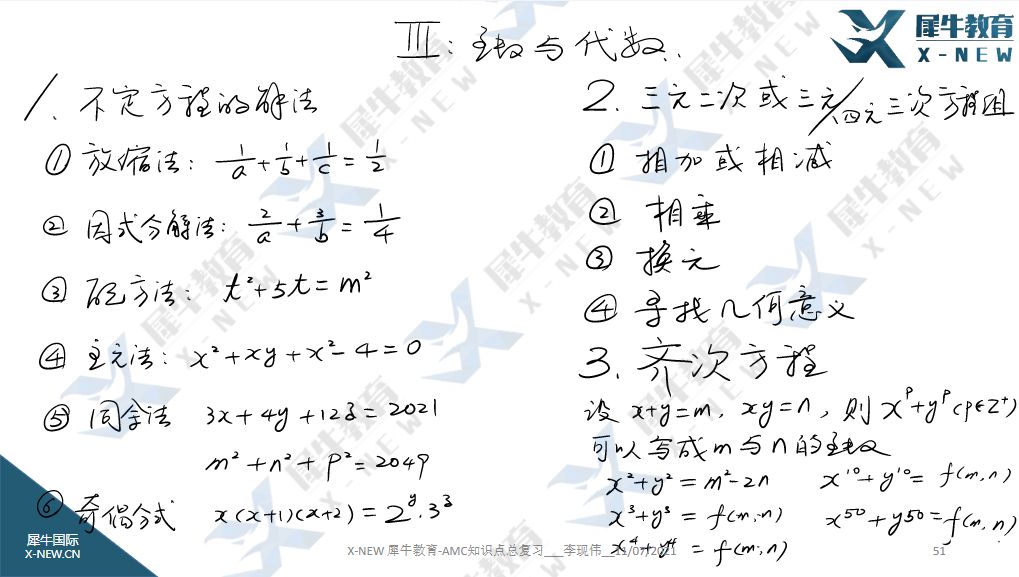 Ⅲ: 函数与代数.
犀牛教育
X-NEW
1. 不定方程的解法
① 放缩法: 1/a + 1/b + 1/c = 1/2
② 因式分解法: 2/a + 3/b = 1/4
③ 配方法: t²+5t=m²
④ 主元法: x²+xy+x²-4=0
⑤ 同余法 3x+4y+123=2021
m²+n²+p²=2049
⑥ 奇偶分式 x(x+1)(x+2)=2^y·3³
2. 三元二次或三元/四元三次方程组
① 相加或相减
② 相乘
③ 换元
④ 寻找几何意义
3. 齐次方程
设 x+y=m, xy=n, 则 x^p+y^p (p∈Z⁺)
可以写成m与n的函数
x²+y²=m²-2n x¹⁰+y¹⁰=f(m,n)
x³+y³=f(m,n) x⁵⁰+y50=f(m,n)
x⁴+y⁴=f(m,n)
犀牛国际
X-NEW.CN
X-NEW 犀牛教育-AMC知识点总复习___李现伟__11/07/2021
51